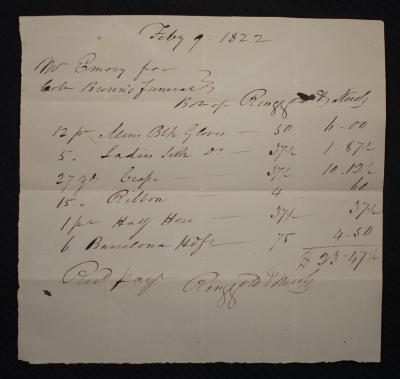 Feby 9. 1822
Mr Emory for
Cole Brown's funeral
Bot of Ringgold &
12 pr Mens Blk Gloves — 50 6.00
5 " Ladies Silk Do — 37½ 1.87½
27 yd Crape — 37½ 10.12½
15 " Ribbon — 4 60
1 pr Half Hose — 37½ 37½
6 Barcelona Hdfs 75 4.50
$ 23.47½
Recd payt Ringgold &